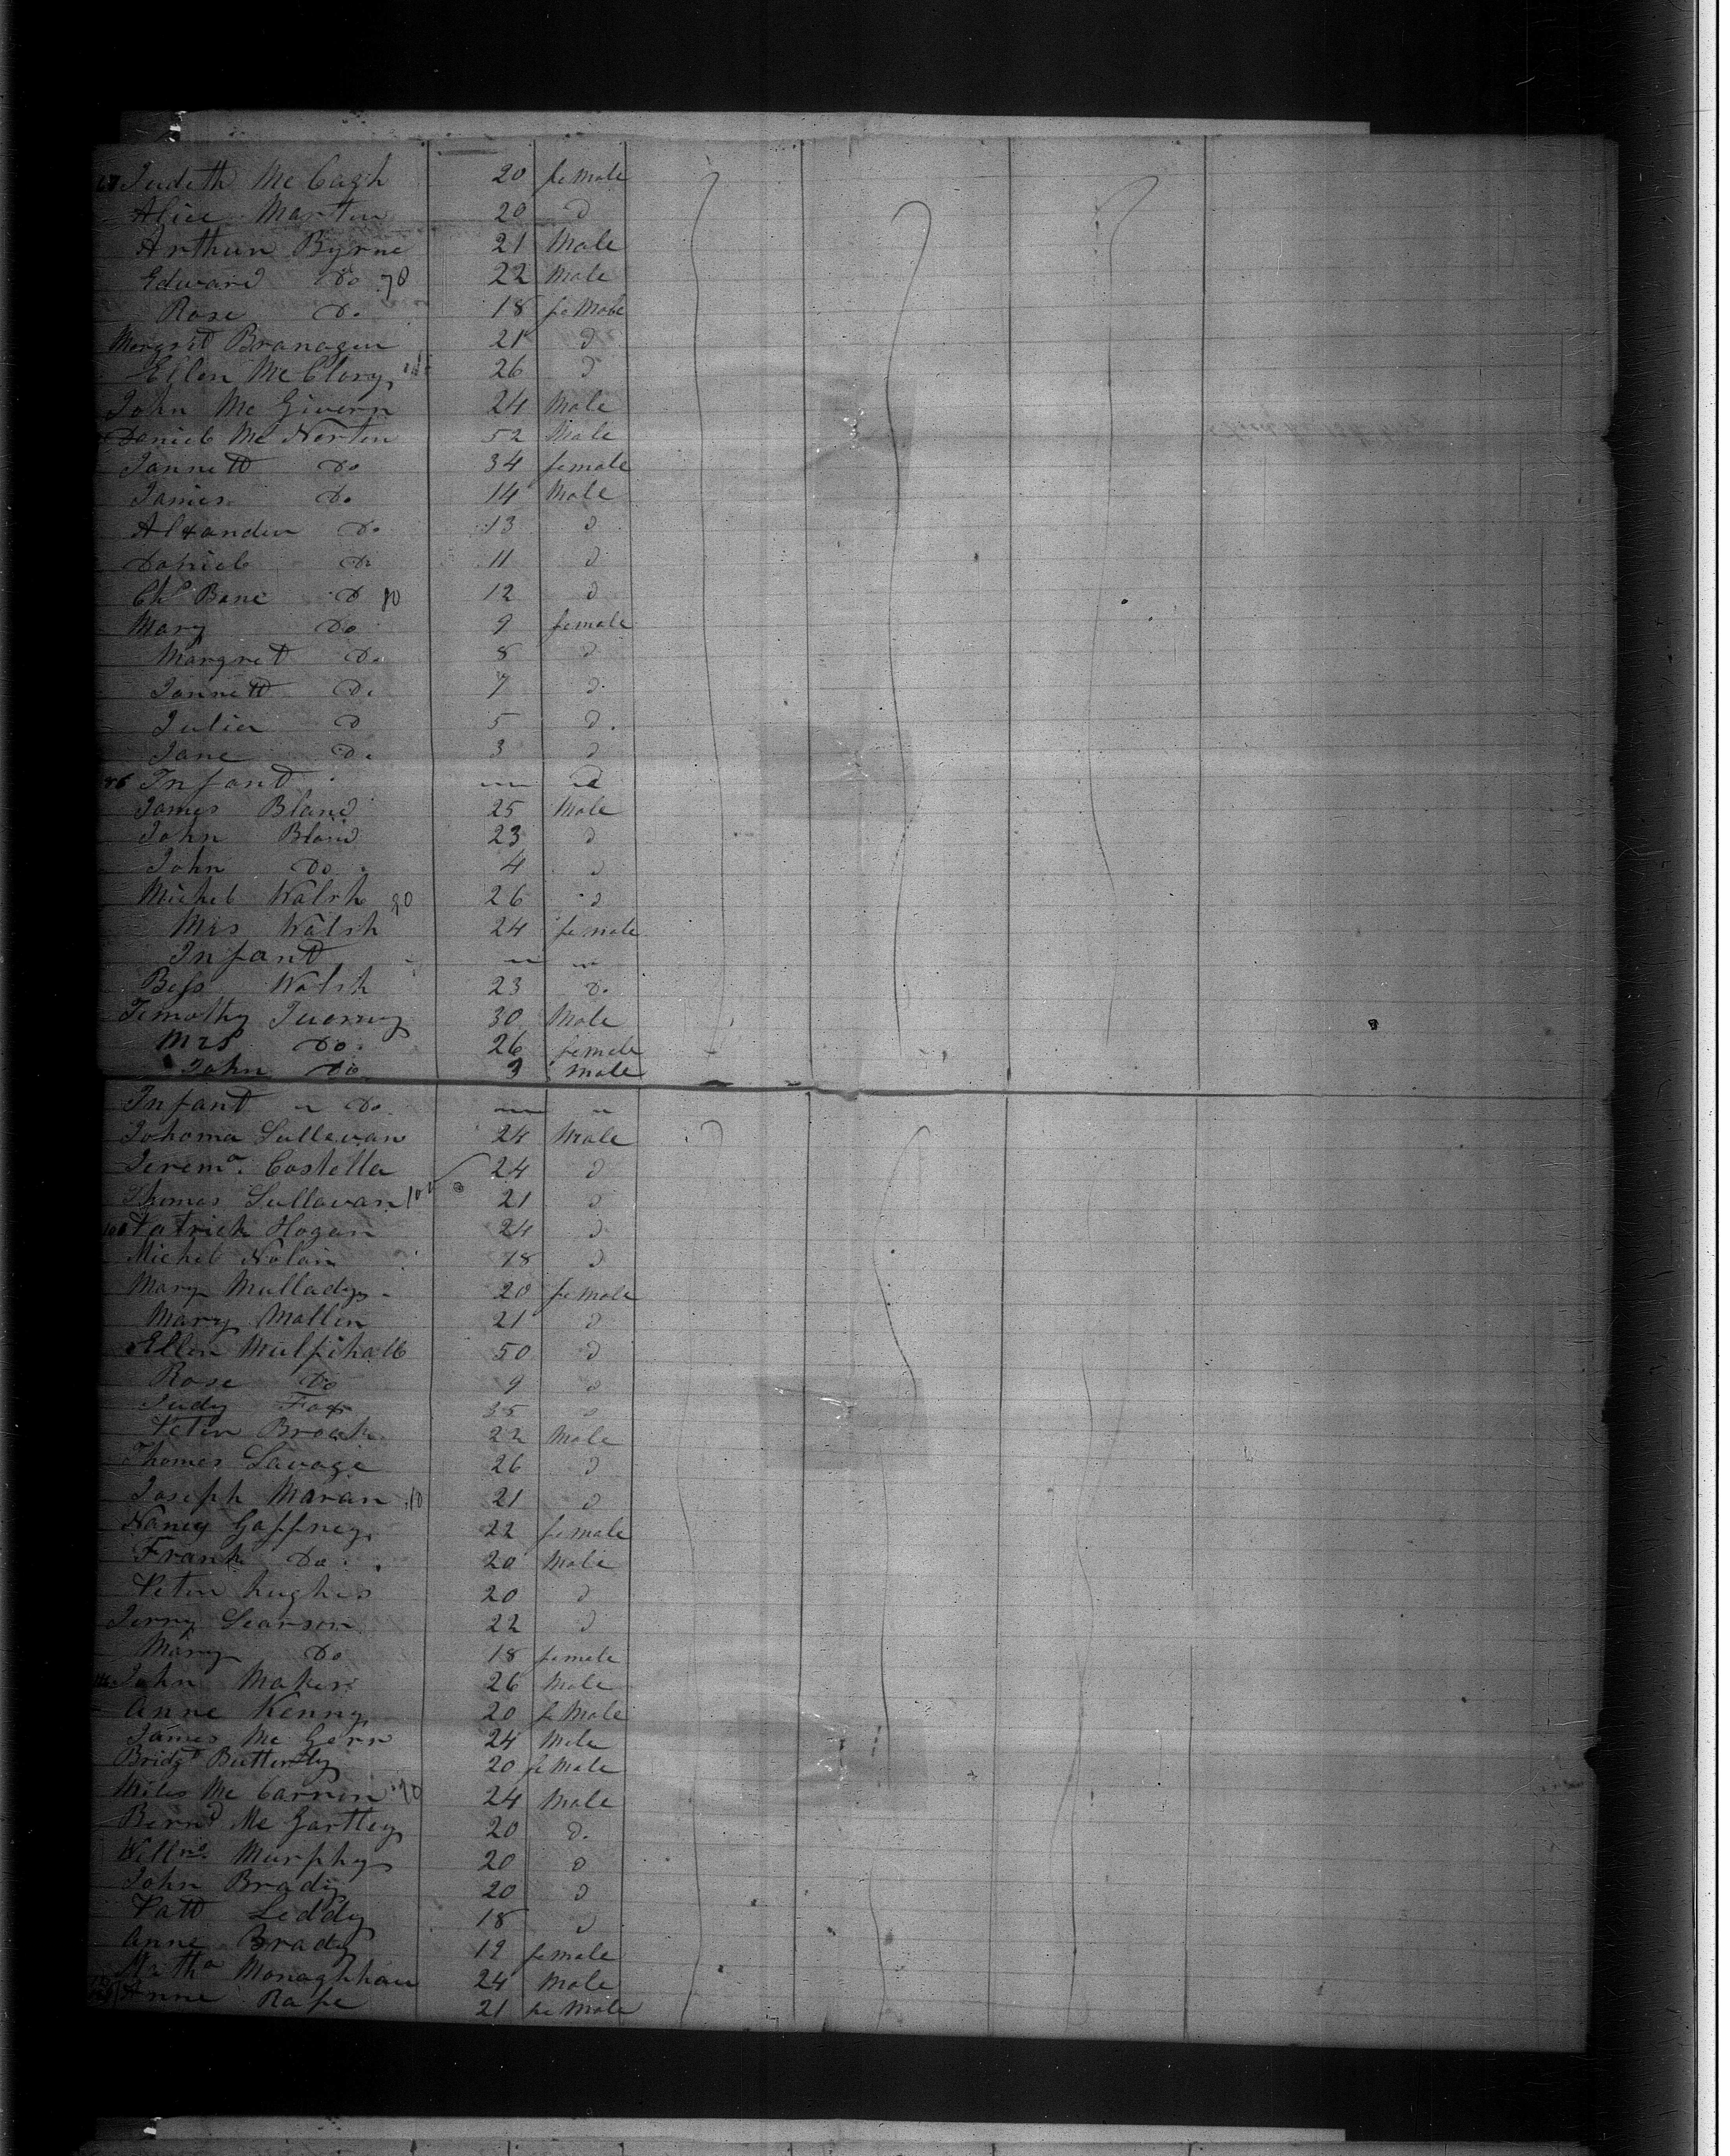 67 Judeth McCagh 20 female
Alice Martin 20 d
Arthur Byrne 21 Male
Edward Do 70 22 Male
Rose Do 18 feMale
Margret Branagen 21 d
Ellen McClory 26 d
John McGivern 24 Male
Daniel McNorten 52 Male
Jannett Do 34 female
James Do 14 Male
Alexander Do 13 d
Daniel Do 11 d
Do 80 12 d
Mary Do 9 female
Margret Do 8 d
Jannett Do 7 d
Julia D 5 d
Jane Do 3 d
86 Infant — d
James Bland 25 Male
John Bland 23 d
John Do 4 d
Michel Walsh 90 26 d
Mrs Walsh 24 female
Infant — "
Bess Walsh 23 Do
Timothy 30 Male
Mrs Do 26 female
John Do 3 male
Infant " Do — "
Johoma Sullevan 24 Male
Jerema. Costella 24 d
Thomas Sullavan 100 21 d
Patrick Hogan 24 d
Michel Nolan 18 d
Mary Mullady 20 female
Mary Mallin 21 d
Ellen Mulfihall 50 d
Rose Do 9 d
Judy Fox 35 d
Peter Brock 22 Male
Thomas Savage 26 d
Joseph Maran 10 21 d
Nancy Gaffney 22 female
Frank Do 20 Male
Peter hughes 20 d
Jerry Searson 22 d
Mary Do 18 female
John Maker 26 Male
Anne Kenny 20 feMale
James McGerr 24 Male
Bridgt Butterly 20 feMale
Miles McCarren 20 24 Male
Bernd McGartley 20 d.
Willm Murphy 20 d
John Brady 20 d
Patt Leddy 18 d
Anne Brady 19 female
Monaghhan 24 Male
Anne 21 feMale